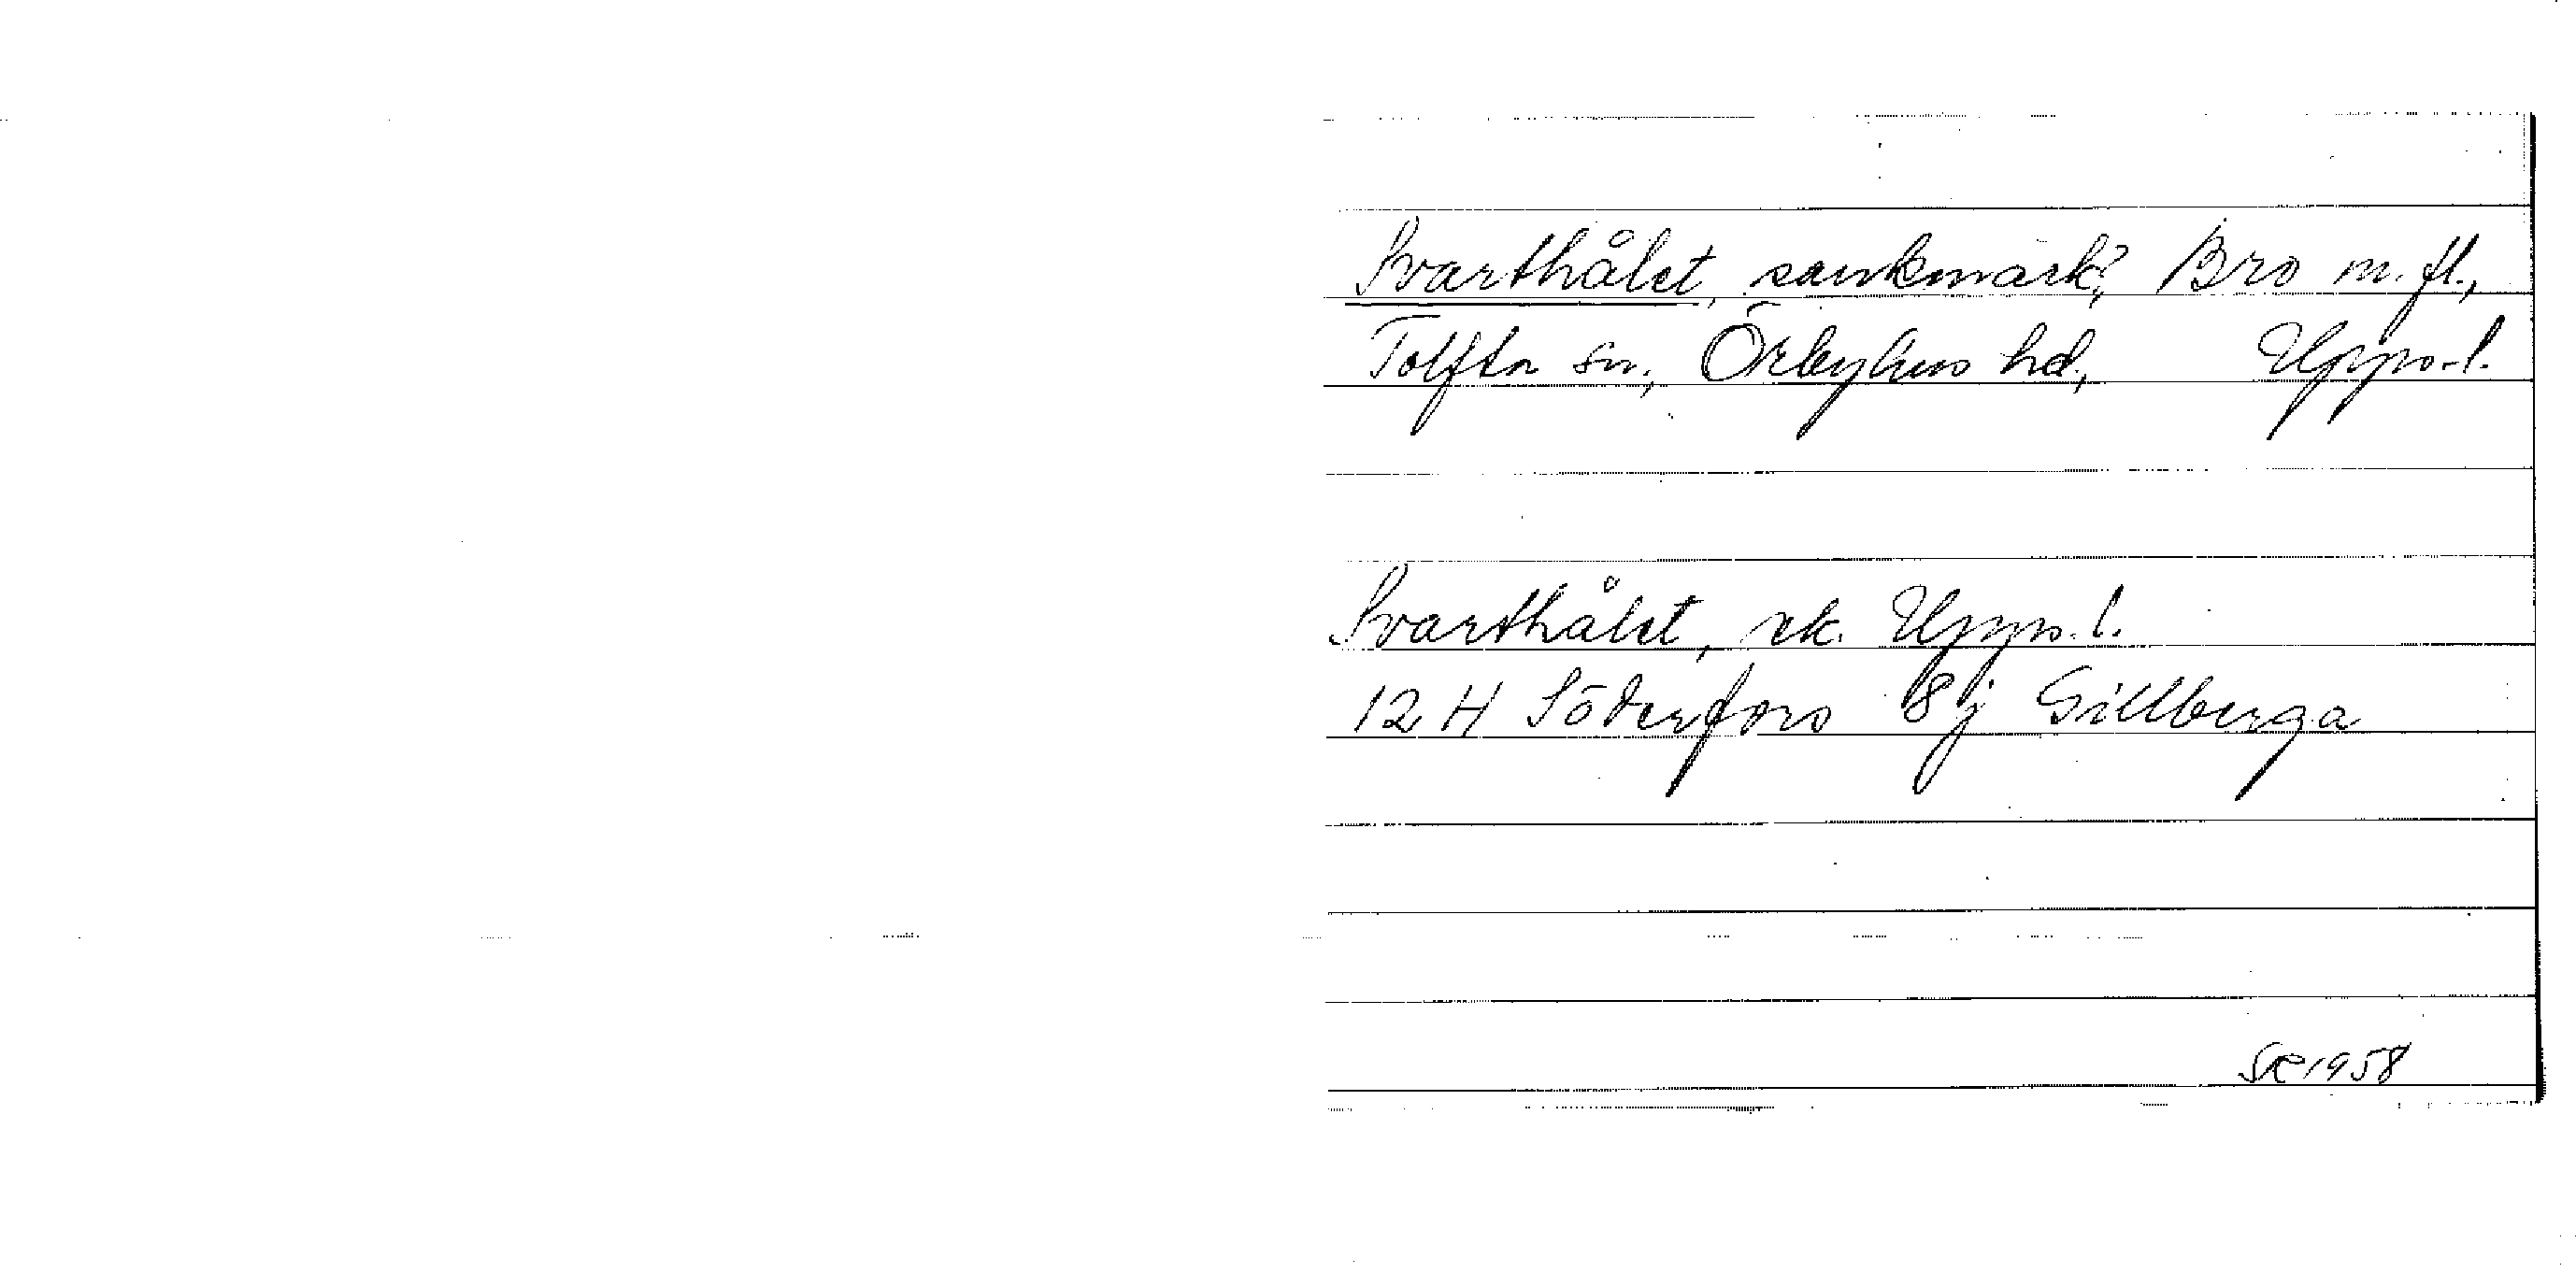 Svarthålet, sankmark?, Bro m. fl.,
Tolfta sn., Örbyhus hd, Upps. l.
Svarthålet, ek. Upps. l.
12 H Söderfors 8j Gillberga
SR 1958